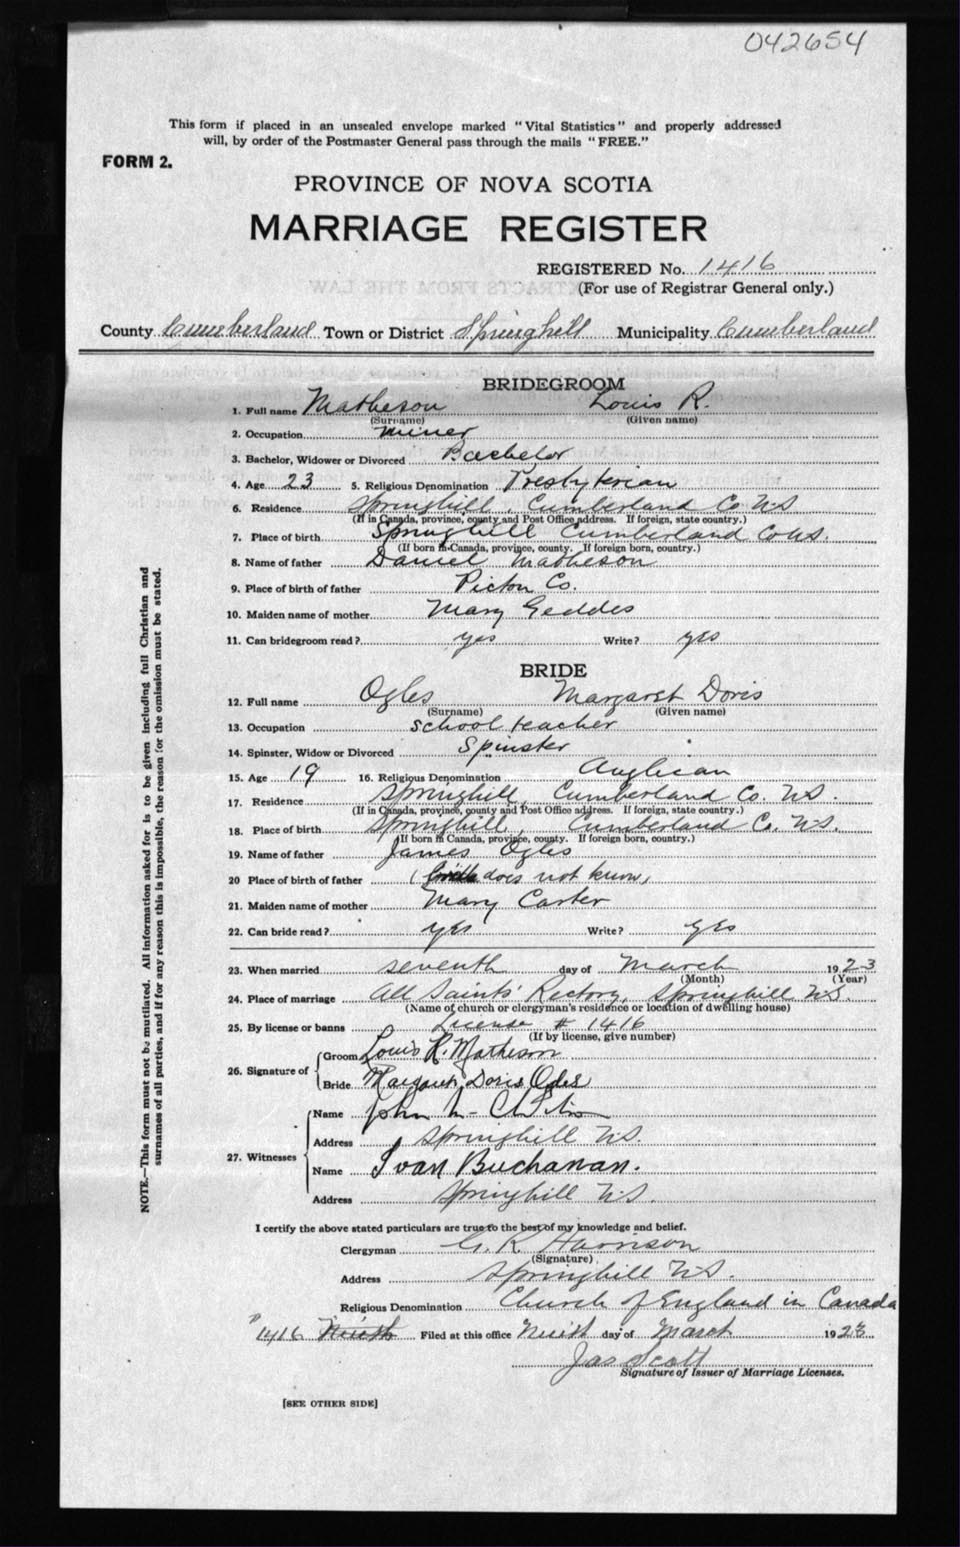 042654
This form if placed in an unsealed envelope marked "Vital Statistics" and properly addressed
will, by order of the Postmaster General pass through the mails "FREE."
FORM 2.
PROVINCE OF NOVA SCOTIA
MARRIAGE REGISTER
REGISTERED No. 1416
(For use of Registrar General only.)
County Cumberland Town or District Springhill Municipality Cumberland
BRIDEGROOM
1. Full name Matheson Louis R.
(Surname) (Given name)
2. Occupation miner
3. Bachelor, Widower or Divorced Bachelor
4. Age 23 5. Religious Denomination Presbyterian
6. Residence Springhill, Cumberland Co. N.S
(If in Canada, province, county and Post Office address. If foreign, state country.)
7. Place of birth Springhill Cumberland Co NS.
(If born in Canada, province, county. If foreign born, country.)
8. Name of father Daniel Matheson
9. Place of birth of father Pictou Co.
10. Maiden name of mother Mary Geddes
11. Can bridegroom read? yes Write? yes
BRIDE
12. Full name Ogles Margaret Doris
(Surname) (Given name)
13. Occupation School teacher
14. Spinster, Widow or Divorced Spinster
15. Age 19 16. Religious Denomination Anglican
17. Residence Springhill, Cumberland Co. N.S.
(If in Canada, province, county and Post Office address. If foreign, state country.)
18. Place of birth Springhill, Cumberland Co. N.S.
(If born in Canada, province, county. If foreign born, country.)
19. Name of father James Ogles
20 Place of birth of father ( does not know,
21. Maiden name of mother Mary Carter
22. Can bride read? yes Write? yes
23. When married seventh day of March 1923
(Month) (Year)
24. Place of marriage All Saints' Rectory, Springhill N.S.
(Name of church or clergyman's residence or location of dwelling house)
25. By license or banns License # 1416
(If by license, give number)
26. Signature of Groom Louis R. Matheson
Bride Margaret Doris Ogles
27. Witnesses
Name John
Address Springhill N.S.
Name Ivan Buchanan.
Address Springhill N.S.
I certify the above stated particulars are true to the best of my knowledge and belief.
Clergyman G. R. Harrison
(Signature)
Address Springhill N.S.
Religious Denomination Church of England in Canada
1416 Filed at this office day of March 1923
Jas Scott
Signature of Issuer of Marriage Licenses.
[SEE OTHER SIDE]
NOTE.—This form must not be mutilated. All information asked for is to be given including full Christian and
surnames of all parties, and if for any reason this is impossible, the reason for the omission must be stated.